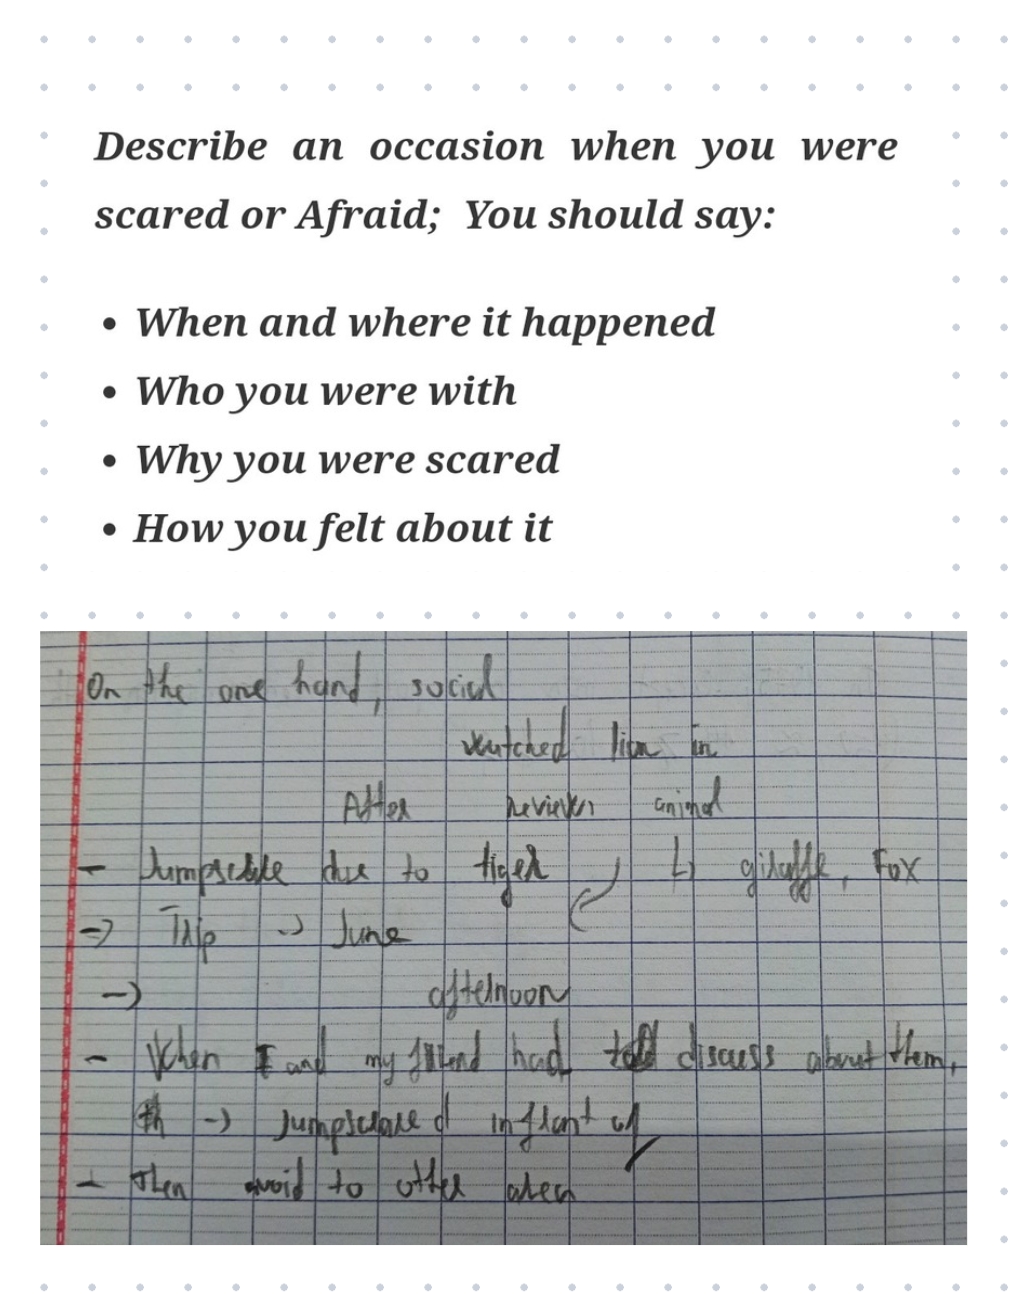 Describe an occasion when you were
scared or Afraid; You should say:
• When and where it happened
• Who you were with
• Why you were scared
• How you felt about it
On the one hand, social
watched lion in
After review animal
- Jumpscare due to tiger ↳ giraffe, Fox
→ Trip → June
→ afternoon
- When I and my friend had discuss about them,
→ Jumpscared in front of
- Then avoid to other area